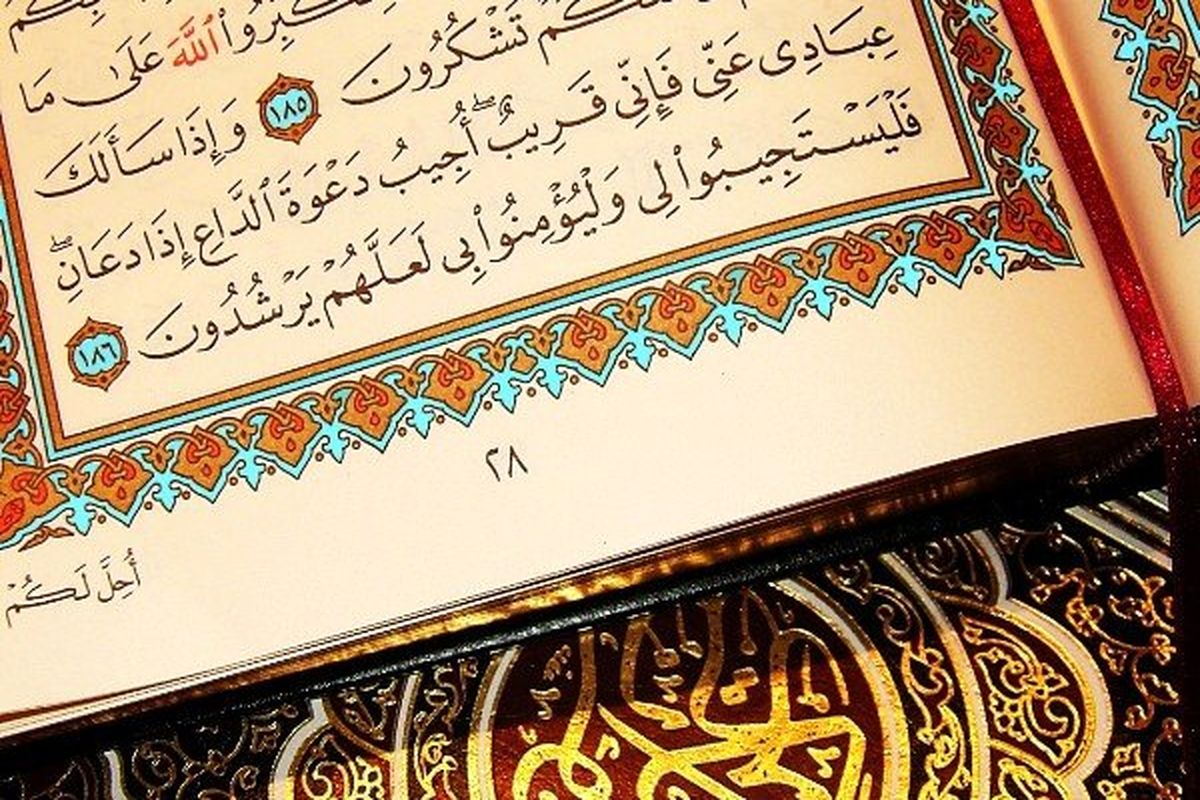 ٱللَّهَ عَلَىٰ مَا
تَشْكُرُونَ ١٨٥ وَإِذَا سَأَلَكَ
عِبَادِى عَنِّى فَإِنِّى قَرِيبٌ ۖ أُجِيبُ دَعْوَةَ ٱلدَّاعِ إِذَا دَعَانِ ۖ
فَلْيَسْتَجِيبُوا۟ لِى وَلْيُؤْمِنُوا۟ بِى لَعَلَّهُمْ يَرْشُدُونَ ١٨٦
٢٨
أُحِلَّ لَكُمْ